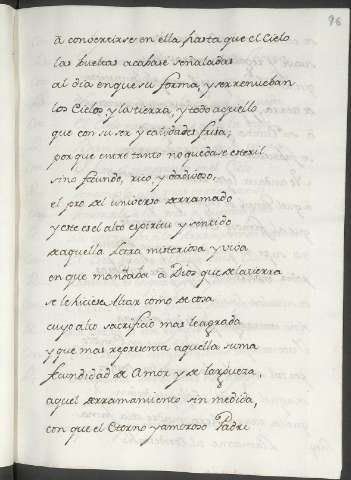 96
à convertirse en ella hasta que el Cielo
las bueltas acabase señaladas
al dia en que su forma, y ser renueban
los Cielos, y la tierra, y todo aquello
que con su ser y calidades frisa;
porque entre tanto no quedase esteril
sino fecundo, rico, y dadivoso,
el pro del universo derramado
y este es el alto espiritu y sentido
de aquella letra misteriosa y viva
en que mandaba à Dios que de la tierra
se le hiciese Altar como de cosa
cuyo alto sacrificio mas le agrada
y que mas representa aquella suma
fecundidad de Amor y de largueza,
aquel derramamiento sin medida,
con que el Eterno y amoroso Padre